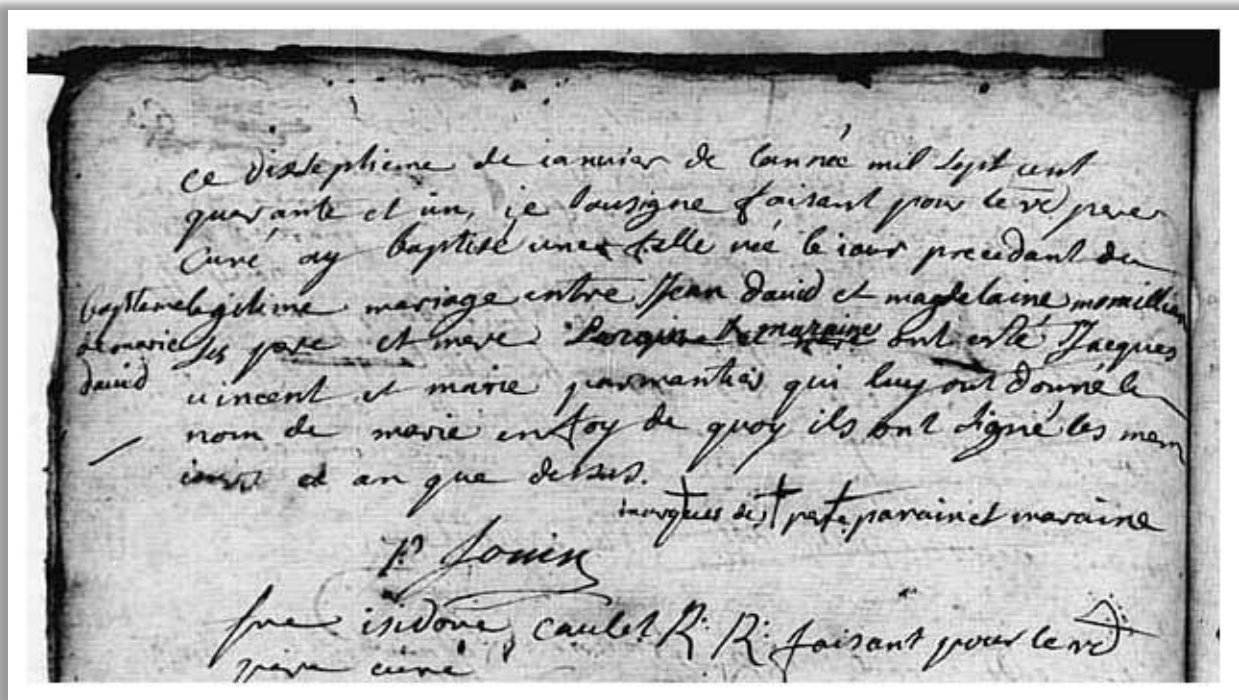 ce dixseptieme de ianuier de lannée mil sept cent
quarante et un, ie sousigné faisant pour le rd pere
Curé ay baptisé une fille née le iour precedant du
legitime mariage entre Jean david et magdelaine
ses pere et mere Le parain et maraine ont esté Jacques
vincent et marie parmantier qui luy ont donné le
nom de marie en foy de quoy ils ont signé les mem
iours et an que dessus.
bapteme
de marie
david
marques des pere, parain et maraine
P Jouin
fre isidore caulet R: R: faisant pour le rd
pere curé